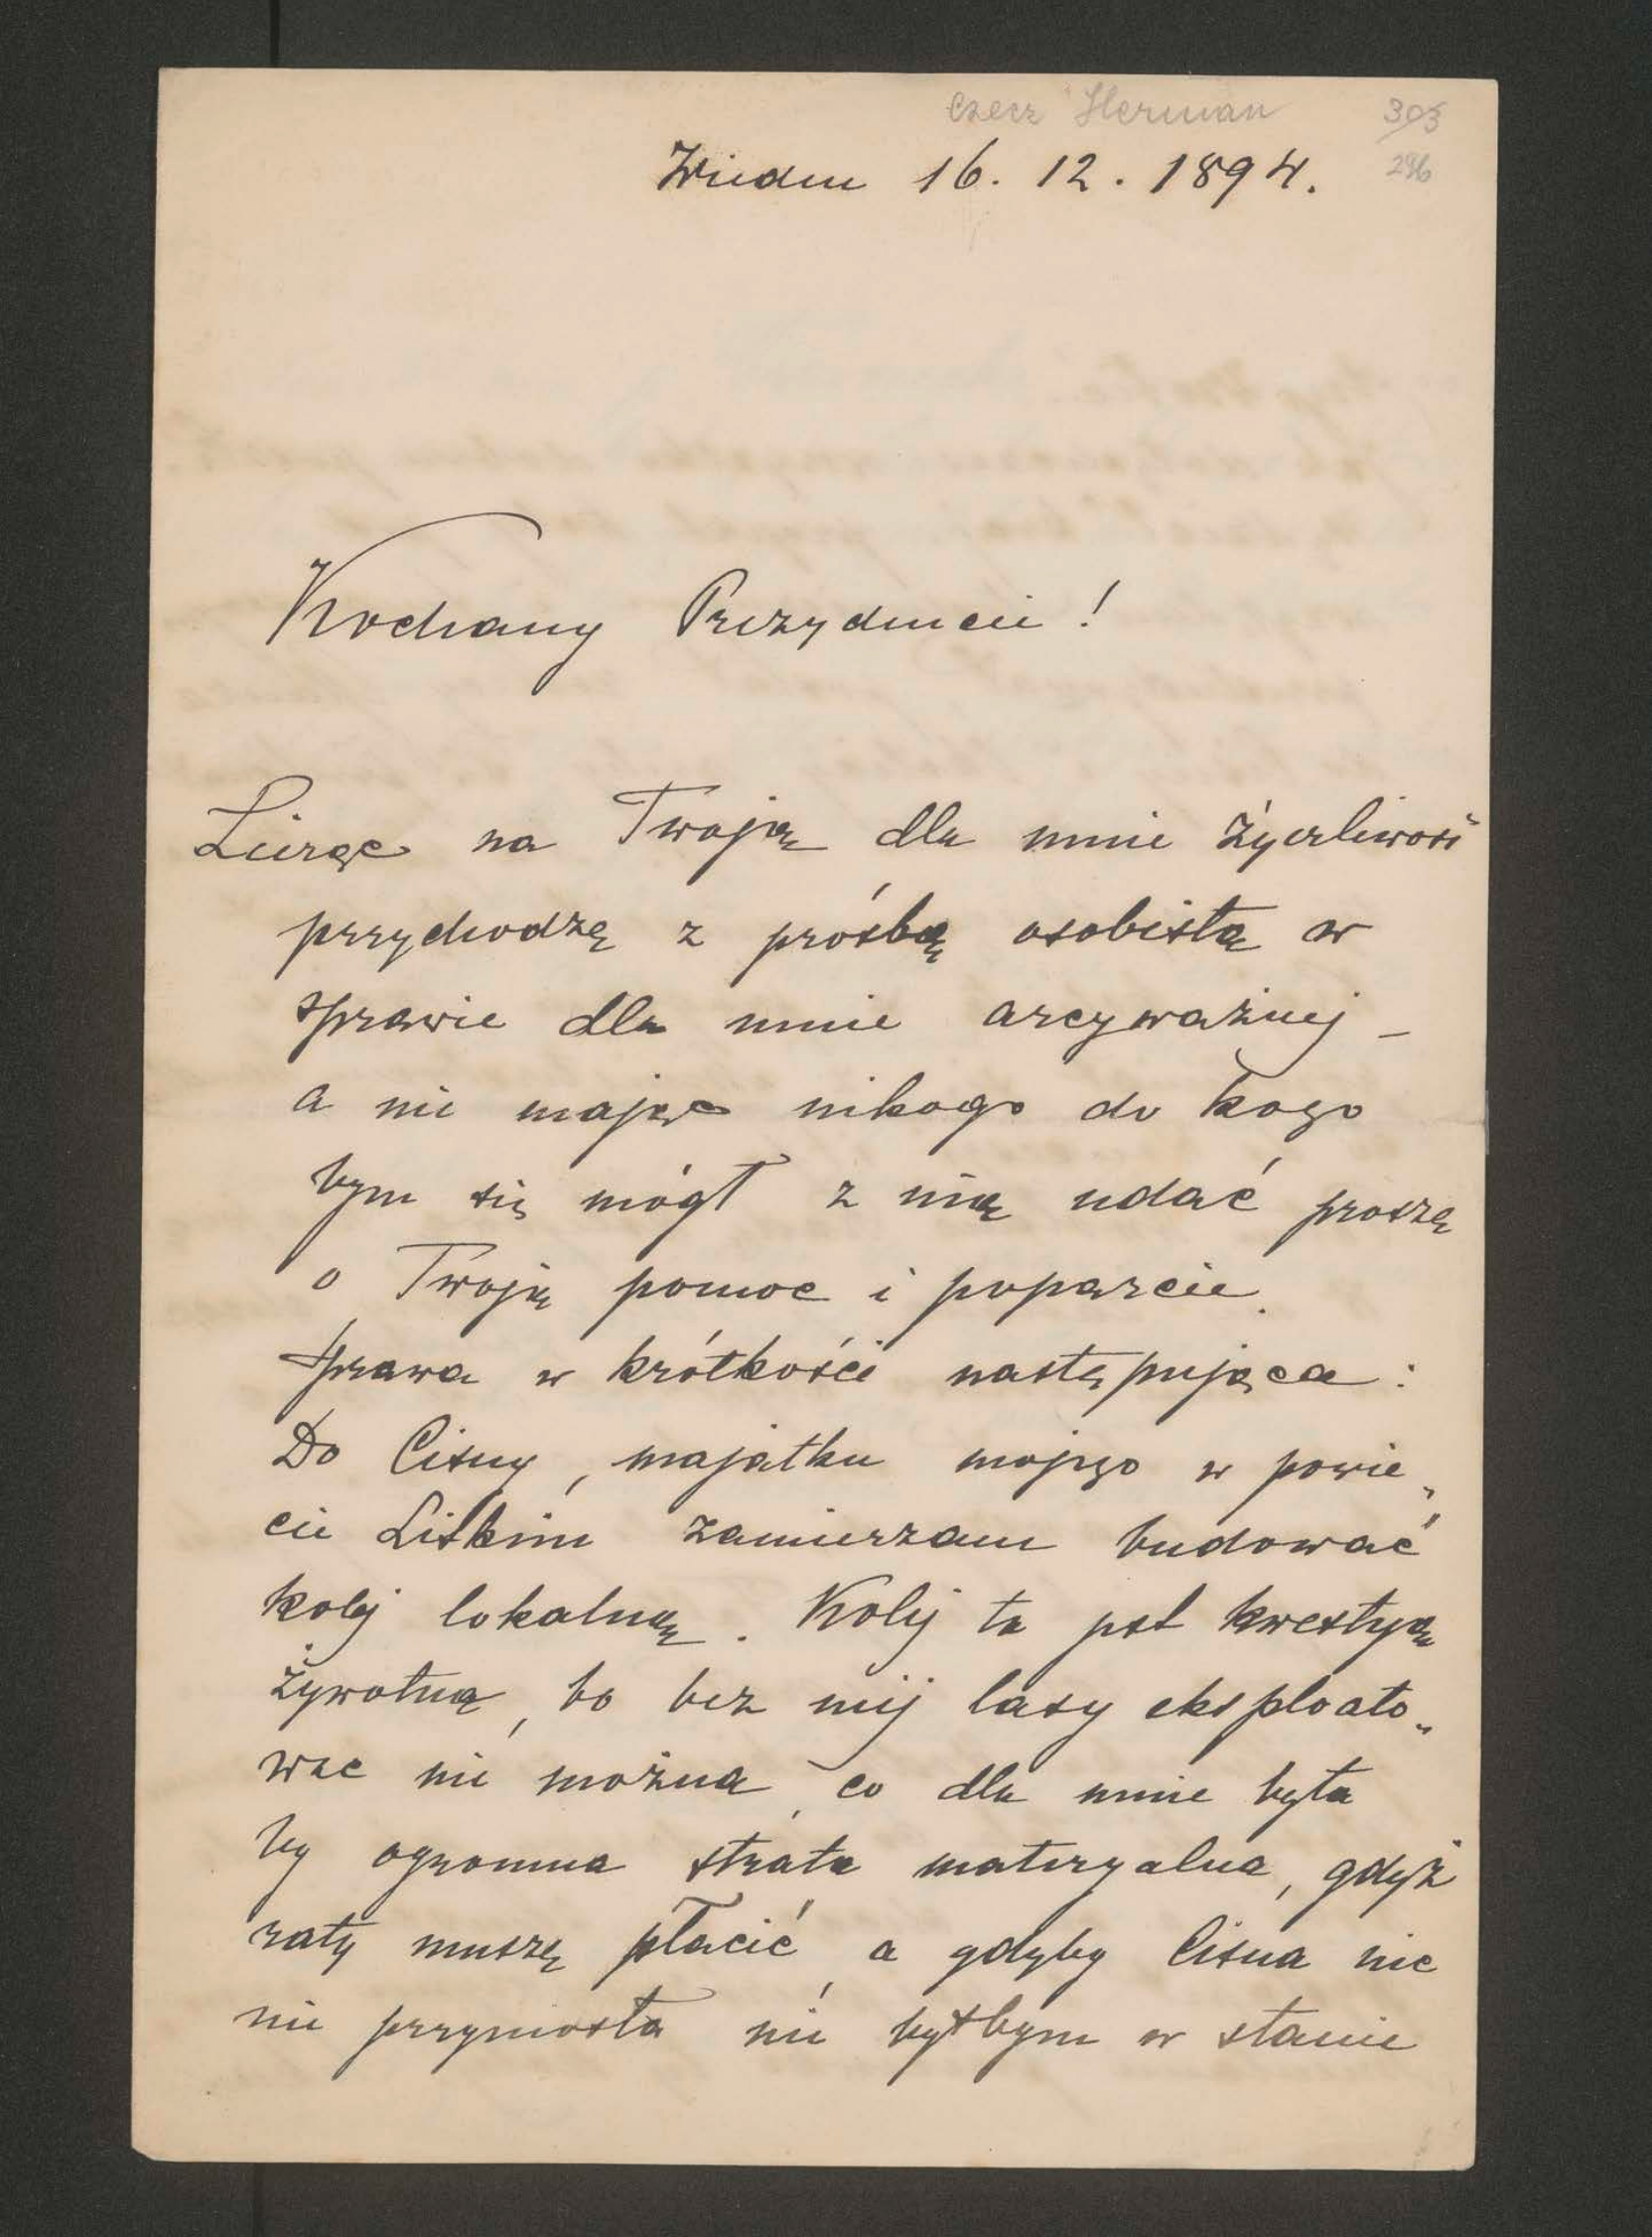 Czecz Herman 303
Wiedeń 16. 12. 1894. 296
Kochany Prezydencie!
Licząc na Twoją dla mnie życzliwość
przychodzę z prośbą osobistą w
sprawie dla mnie arcyważnej –
a nie mając nikogo do kogo
bym się mógł z nią udać proszę
o Twoją pomoc i poparcie.
Sprawa w krótkości następująca:
Do Cisny, majątku mojego w powie„
cie Liskim zamierzam budować
kolej lokalną. Kolej ta jest kwestyą
żywotną, bo bez niej lasy eksploato„
wac nie można, co dla mnie była
by ogromna strata materyalna, gdyż
raty muszę płacić, a gdyby Cisna nic
nie przyniosła nie byłbym w stanie